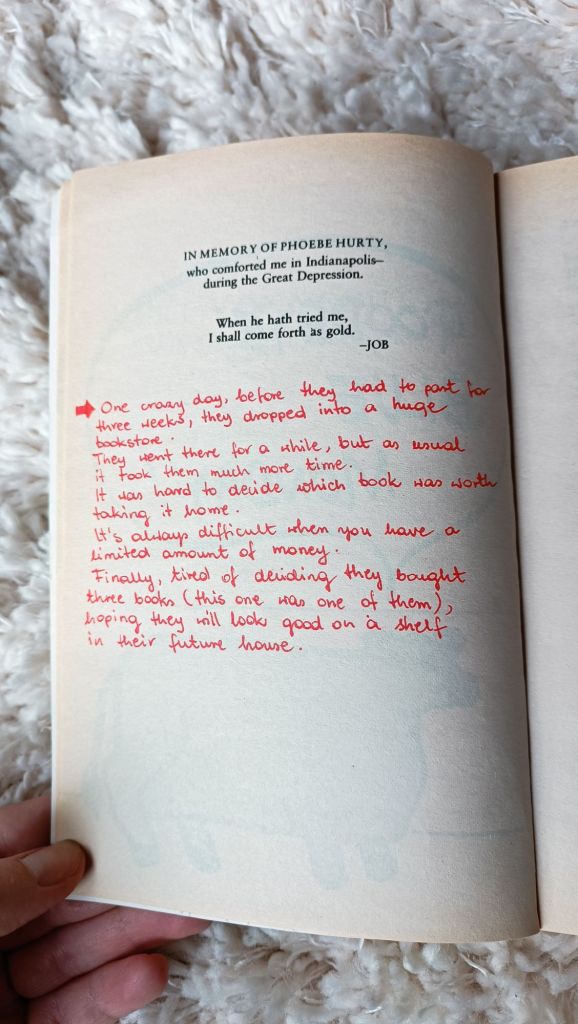 IN MEMORY OF PHOEBE HURTY,
who comforted me in Indianapolis—
during the Great Depression.
When he hath tried me,
I shall come forth as gold.
—JOB
One crazy day, before they had to part for
three weeks, they dropped into a huge
bookstore.
They went there for a while, but as usual
it took them much more time.
It was hard to decide which book was worth
taking it home.
It's always difficult when you have a
limited amount of money.
Finally, tired of deciding they bought
three books (this one was one of them),
hoping they will look good on a shelf
in their future house.